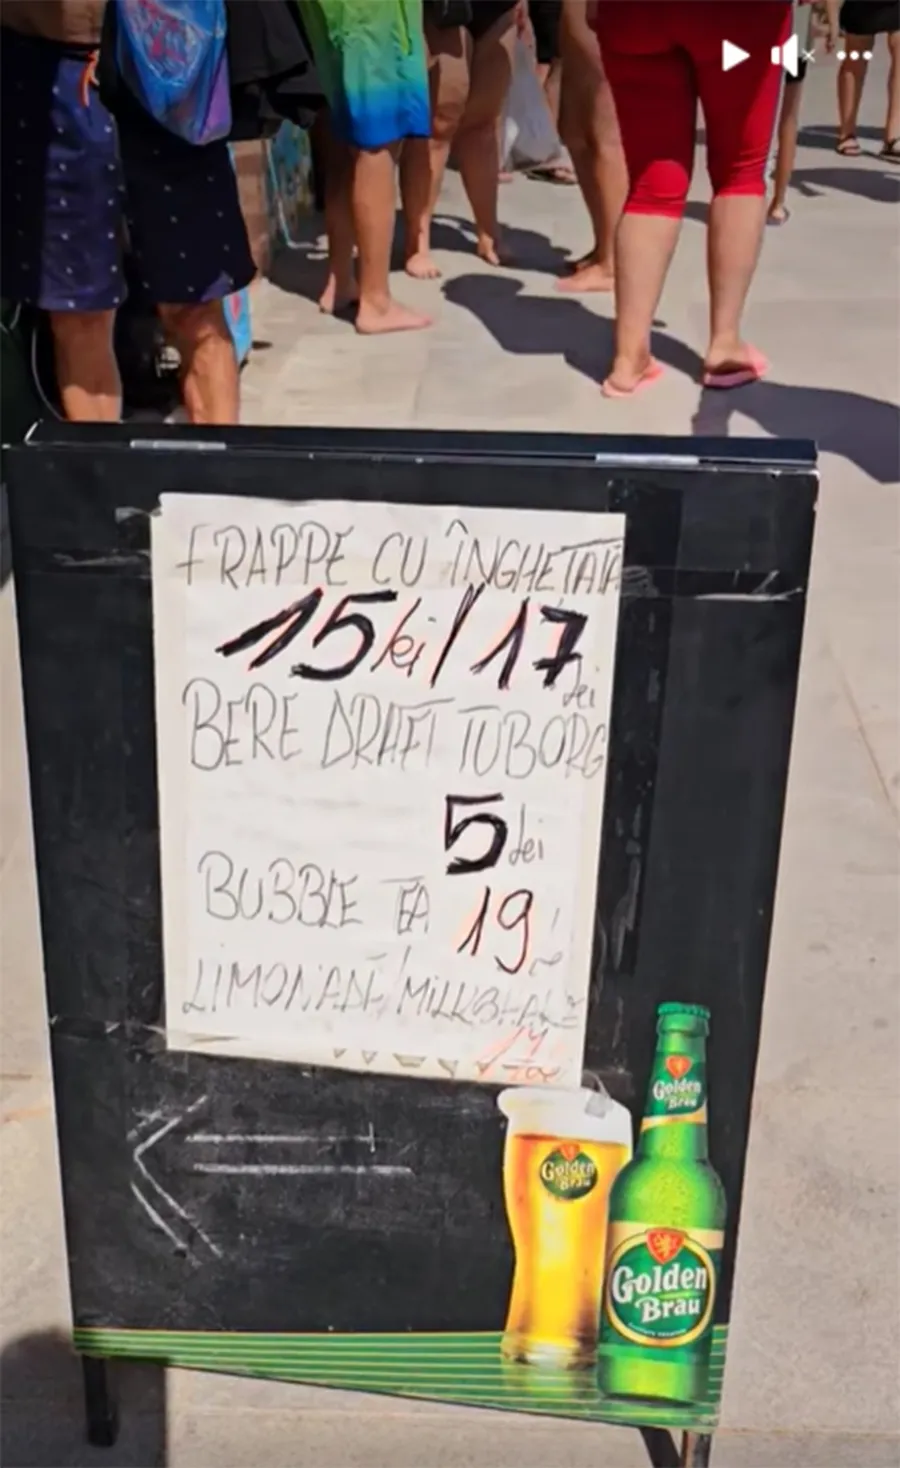 FRAPPE CU ÎNGHEȚATĂ
15 lei / 17 lei
BERE DRAFT TUBORG
5 lei
BUBBLE TEA 19
LIMONADĂ / MILKSHAKE
Golden
Brau
Golden
Brau
Golden
Brau